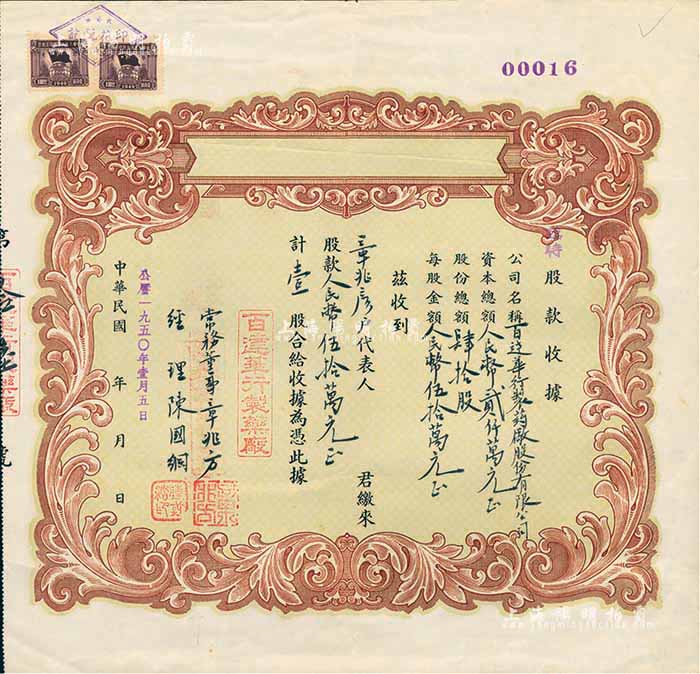 00016
股款收據
公司名稱百達華行製药廠股份有限公司
資本總額人民幣貳仟萬元正
股份總額肆拾股
每股金額人民幣伍拾萬元正
茲收到
章兆彥户代表人 君繳來
股款人民幣伍拾萬元正
計壹股合給收據為憑此據
百達華行製藥廠
常務董事章兆方
經理陳國綱
公曆一九五〇年壹月五日
中華民國 年 月 日
號